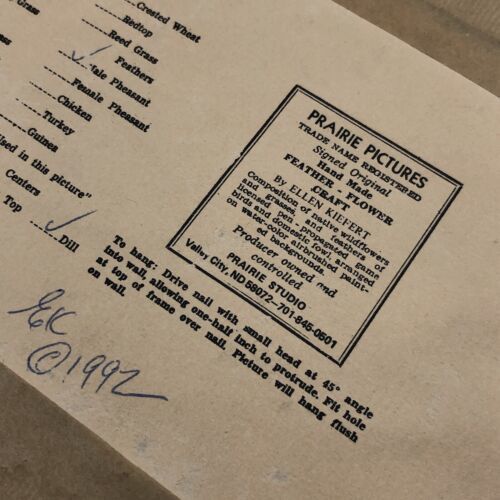 Crested Wheat
Grass
Redtop
Reed Grass
Feathers
Male Pheasant
Female Pheasant
Chicken
Turkey
Guinea
Used in this picture"
Centers
Top
Dill
EK
©1992
PRAIRIE PICTURES
TRADE NAME REGISTERED
Signed Original
Hand Made
FEATHER - FLOWER
CRAFT
By ELLEN KIEFERT
Composition of native wildflowers
and grasses, and feathers of
licensed pen - propagated game
birds and domestic fowl, arranged
on water-color airbrushed paint-
ed backgrounds
Producer owned and
controlled
PRAIRIE STUDIO
Valley City, ND 58072—701-845-0501
To hang: Drive nail with small head at 45° angle
into wall, allowing one-half inch to protrude. Fit hole
at top of frame over nail. Picture will hang flush
on wall.